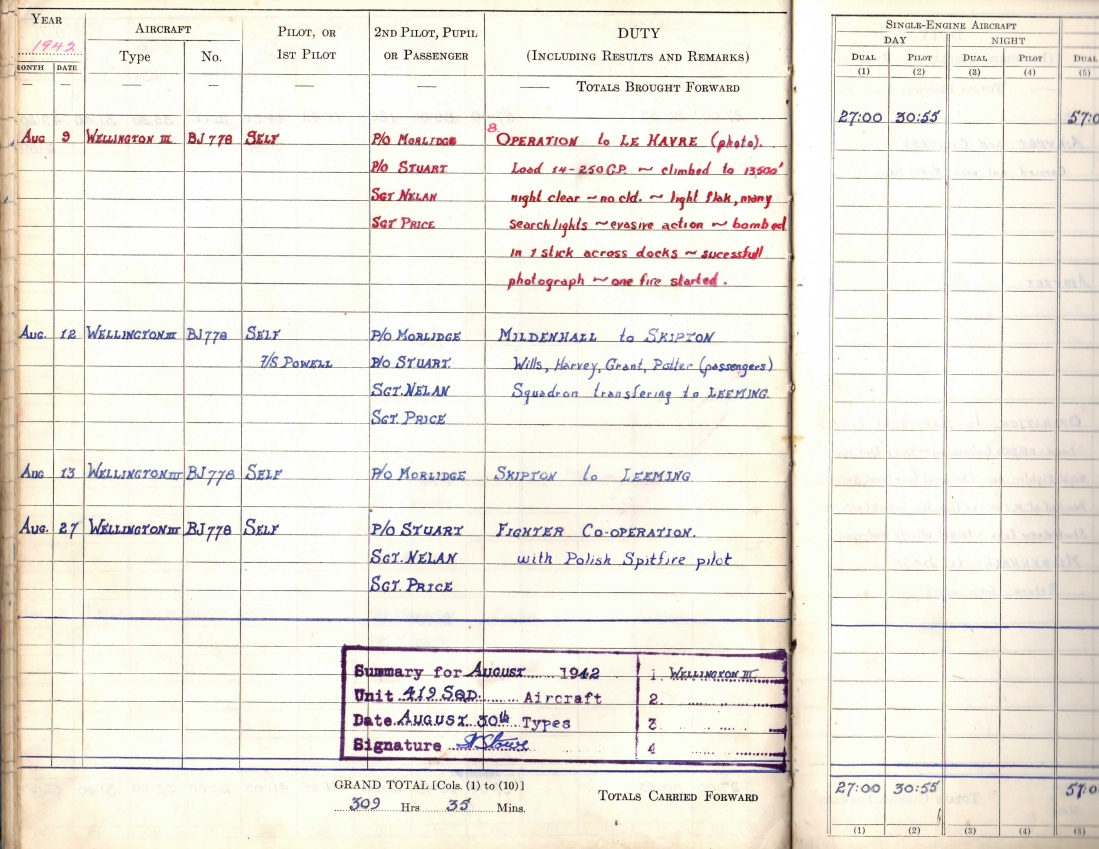 YEAR 1942
AIRCRAFT
PILOT, OR 1ST PILOT
2ND PILOT, PUPIL OR PASSENGER
DUTY (INCLUDING RESULTS AND REMARKS)
SINGLE-ENGINE AIRCRAFT
DAY NIGHT
MONTH DATE Type No.
DUAL PILOT DUAL PILOT DUAL
(1) (2) (3) (4) (5)
— — — — — — —— TOTALS BROUGHT FORWARD
27:00 30:55 57:0
AUG 9 WELLINGTON III BJ778 SELF P/O MORLIDGE 8. OPERATION to LE HAVRE (photo).
P/O STUART Load 14-250 G.P. ~ climbed to 13,500'
SGT NELAN night clear ~ no cld. ~ light flak, many
SGT PRICE searchlights ~ evasive action ~ bombed
in 1 stick across docks ~ sucessfull
photograph ~ one fire started.
AUG. 12 WELLINGTON III BJ778 SELF P/O MORLIDGE MILDENHALL to SKIPTON
F/S POWELL P/O STUART. Wills, Harvey, Grant, Potter (passengers)
SGT. NELAN Squadron transfering to LEEMING.
SGT. PRICE
AUG 13 WELLINGTON III BJ778 SELF P/O MORLIDGE SKIPTON to LEEMING
AUG. 27 WELLINGTON III BJ778 SELF P/O STUART FIGHTER CO-OPERATION.
SGT. NELAN with Polish Spitfire pilot
SGT. PRICE
Summary for AUGUST 1942 1. WELLINGTON III.
Unit 419 SQD. Aircraft 2.
Date AUGUST 30th Types 3
Signature 4
GRAND TOTAL [Cols. (1) to (10)]
309 Hrs 35 Mins.
TOTALS CARRIED FORWARD
27:00 30:55 57:0
(1) (2) (3) (4) (5)